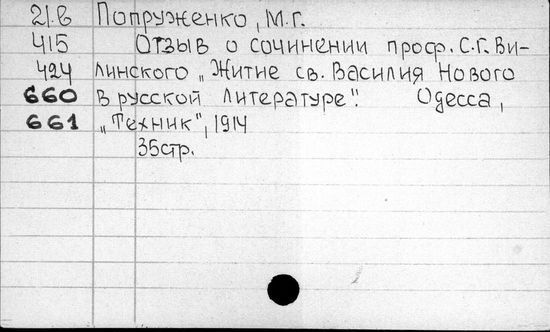 21.в Попруженко, М.Г.
415 Отзыв о сочинении проф. С.Г. Ви-
424 линского „Житие св. Василия Нового
660 в русской литературе". Одесса,
661 „Техник", 1914
35стр.